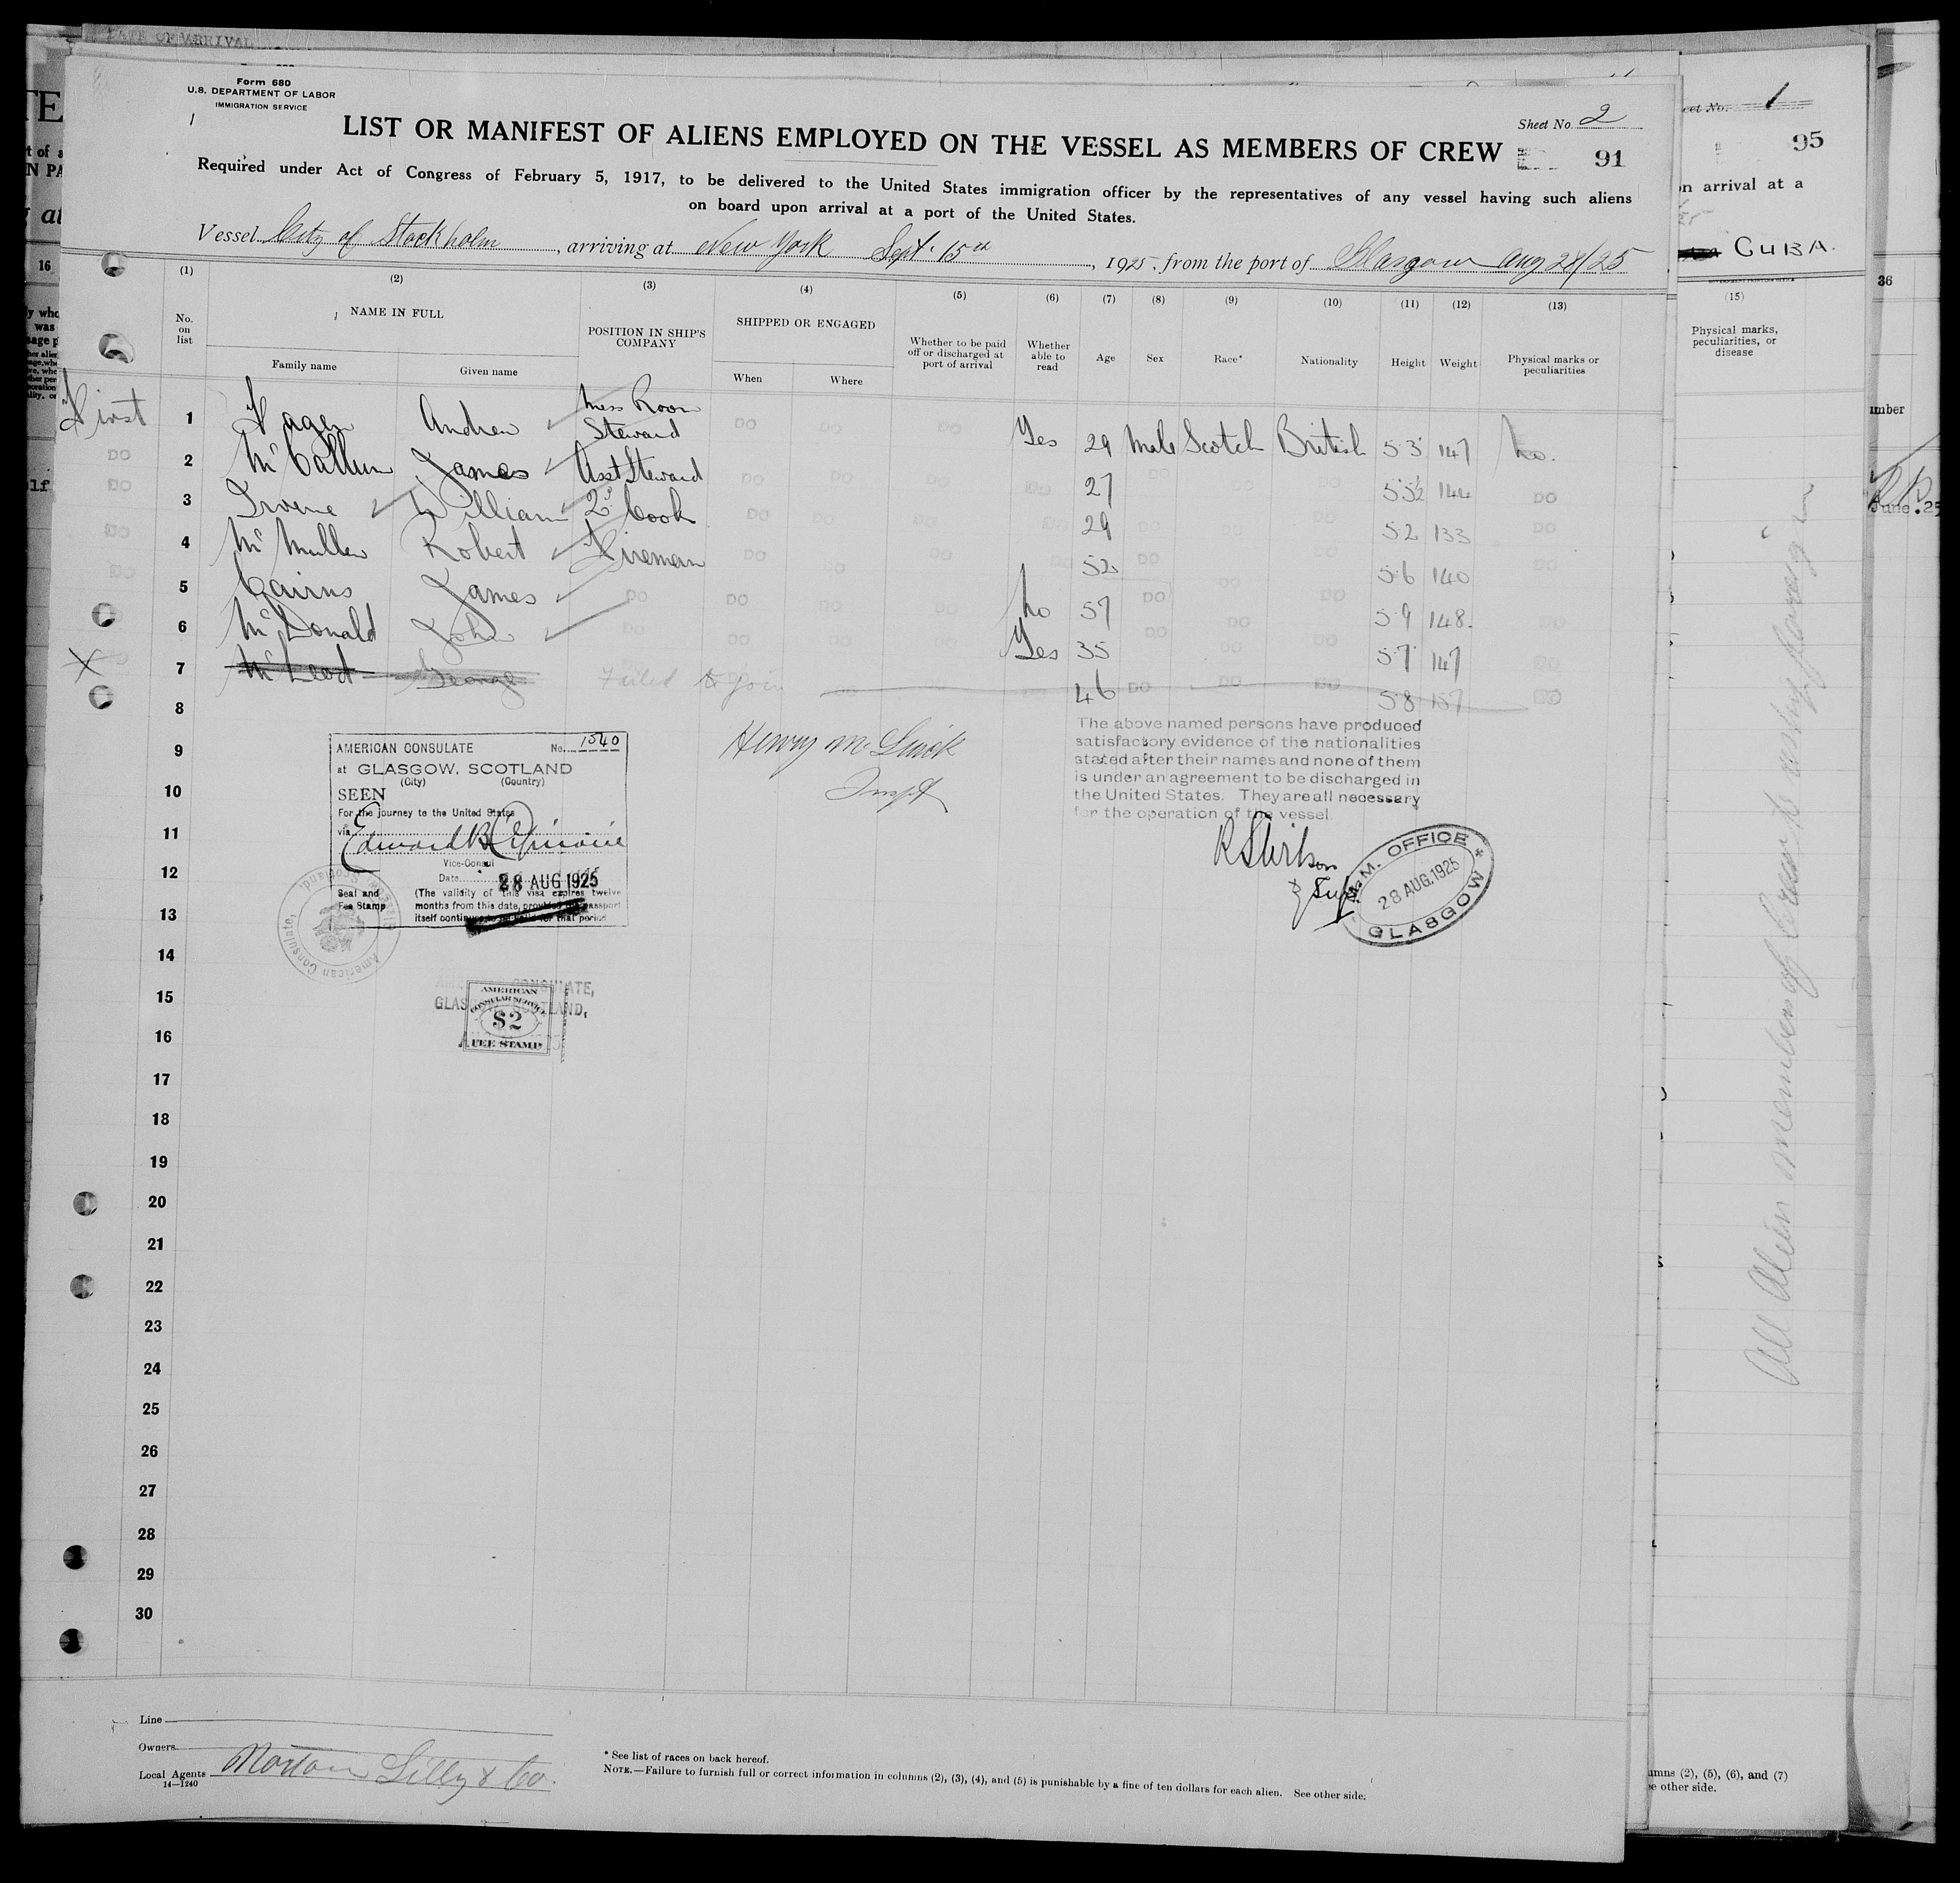 DATE OF ARRIVAL
Form 680
U.S. DEPARTMENT OF LABOR
IMMIGRATION SERVICE
Sheet No. 2
LIST OR MANIFEST OF ALIENS EMPLOYED ON THE VESSEL AS MEMBERS OF CREW
91
Required under Act of Congress of February 5, 1917, to be delivered to the United States immigration officer by the representatives of any vessel having such aliens
on board upon arrival at a port of the United States.
Vessel City of Stockholm, arriving at New York Sept. 15th, 1925, from the port of Glasgow Aug 28/25
(1) (2) (3) (4) (5) (6) (7) (8) (9) (10) (11) (12) (13)
No. on list
NAME IN FULL
Family name
Given name
POSITION IN SHIP'S COMPANY
SHIPPED OR ENGAGED
When
Where
Whether to be paid off or discharged at port of arrival
Whether able to read
Age
Sex
Race*
Nationality
Height
Weight
Physical marks or peculiarities
First 1 Andrew Mess Room Steward DO DO DO Yes 29 Male Scotch British 5.3 147 No.
DO 2 McCallum James Asst Steward DO DO DO DO 27 DO DO DO 5.5½ 144 DO
DO 3 Irvine William 2nd Cook DO DO DO DO 29 DO DO DO 5.2 133 DO
DO 4 Robert Fireman DO DO DO DO 52 DO DO DO 5.6 140 DO
DO 5 Cairns James DO DO DO DO No 57 DO DO DO 5.9 148. DO
6 McDonald John DO DO DO DO Yes 35 DO DO DO 5.7 147 DO
X 7 McLeod George Failed to join DO DO 46 DO DO DO 5.8 157 DO
8
9
10
11
12
13
14
15
16
17
18
19
20
21
22
23
24
25
26
27
28
29
30
AMERICAN CONSULATE No. 1540
at GLASGOW, SCOTLAND
(City) (Country)
SEEN
For the journey to the United States
via
Vice-Consul
Date 28 AUG 1925
Seal and Fee Stamp
(The validity of this visa expires twelve
months from this date, provided the passport
itself continues to be valid for that period
American Consulate, Glasgow, Scotland.
AMERICAN CONSULATE,
GLASGOW, SCOTLAND,
AMERICAN
CONSULAR SERVICE
$2
FEE STAMP
Henry
Inspt
The above named persons have produced
satisfactory evidence of the nationalities
stated after their names and none of them
is under an agreement to be discharged in
the United States. They are all necessary
for the operation of the vessel.
Supt
M. M. OFFICE
28 AUG. 1925
GLASGOW
Line
Owners
Local Agents
14—1240
* See list of races on back hereof.
NOTE.—Failure to furnish full or correct information in columns (2), (3), (4), and (5) is punishable by a fine of ten dollars for each alien. See other side.
eet No. 1
95
on arrival at a
CUBA.
(15)
Physical marks, peculiarities, or disease
umns (2), (5), (6), and (7)
e other side.
16
36
umber
June. 25